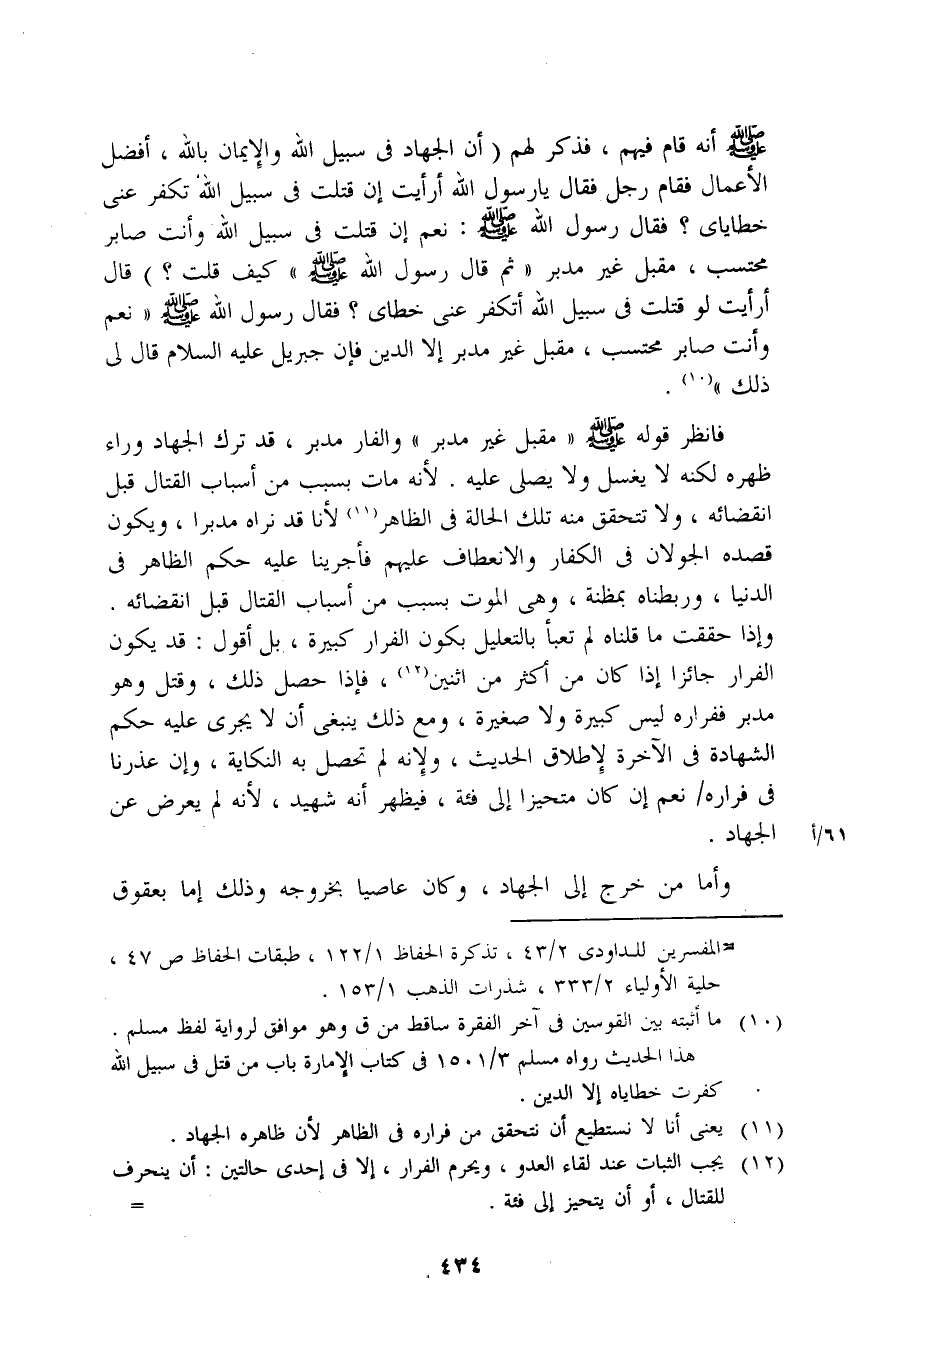 ﷺ أنه قام فيهم ، فذكر لهم ( أن الجهاد فى سبيل الله والإيمان بالله ، أفضل
الأعمال فقام رجل فقال يارسول الله أرأيت إن قتلت فى سبيل الله تكفر عنى
خطاياى ؟ فقال رسول الله ﷺ : نعم إن قتلت فى سبيل الله وأنت صابر
محتسب ، مقبل غير مدبر « ثم قال رسول الله ﷺ » كيف قلت ؟ ) قال
أرأيت لو قتلت فى سبيل الله أتكفر عنى خطاى ؟ فقال رسول الله ﷺ « نعم
وأنت صابر محتسب ، مقبل غير مدبر إلا الدين فإن جبريل عليه السلام قال لى
ذلك »(١٠) .
فانظر قوله ﷺ « مقبل غير مدبر » والفار مدبر ، قد ترك الجهاد وراء
ظهره لكنه لا يغسل ولا يصلى عليه . لأنه مات بسبب من أسباب القتال قبل
انقضائه ، ولا تتحقق منه تلك الحالة فى الظاهر(١١) لأنا قد نراه مدبرا ، ويكون
قصده الجولان فى الكفار والانعطاف عليهم فأجرينا عليه حكم الظاهر فى
الدنيا ، وربطناه بمظنة ، وهى الموت بسبب من أسباب القتال قبل انقضائه .
وإذا حققت ما قلناه لم تعبأ بالتعليل بكون الفرار كبيرة ، بل أقول : قد يكون
الفرار جائزا إذا كان من أكثر من اثنين(١٢) ، فإذا حصل ذلك ، وقتل وهو
مدبر ففراره ليس كبيرة ولا صغيرة ، ومع ذلك ينبغى أن لا يجرى عليه حكم
الشهادة فى الآخرة لإطلاق الحديث ، ولإنه لم تحصل به النكاية ، وإن عذرنا
فى فراره/ نعم إن كان متحيزا إلى فئة ، فيظهر أنه شهيد ، لأنه لم يعرض عن
٦١/أ الجهاد .
وأما من خرج إلى الجهاد ، وكان عاصيا بخروجه وذلك إما بعقوق
=المفسرين للداودى ٤٣/٢ ، تذكرة الحفاظ ١٢٢/١ ، طبقات الحفاظ ص ٤٧ ،
حلية الأولياء ٣٣٣/٢ ، شذرات الذهب ١٥٣/١ .
(١٠) ما أثبته بين القوسين فى آخر الفقرة ساقط من ق وهو موافق لرواية لفظ مسلم .
هذا الحديث رواه مسلم ١٥٠١/٣ فى كتاب الإمارة باب من قتل فى سبيل الله
كفرت خطاياه إلا الدين .
(١١) يعنى أنا لا نستطيع أن نتحقق من فراره فى الظاهر لأن ظاهره الجهاد .
(١٢) يجب الثبات عند لقاء العدو ، ويحرم الفرار ، إلا فى إحدى حالتين : أن ينحرف
للقتال ، أو أن يتحيز إلى فئة . =
٤٣٤